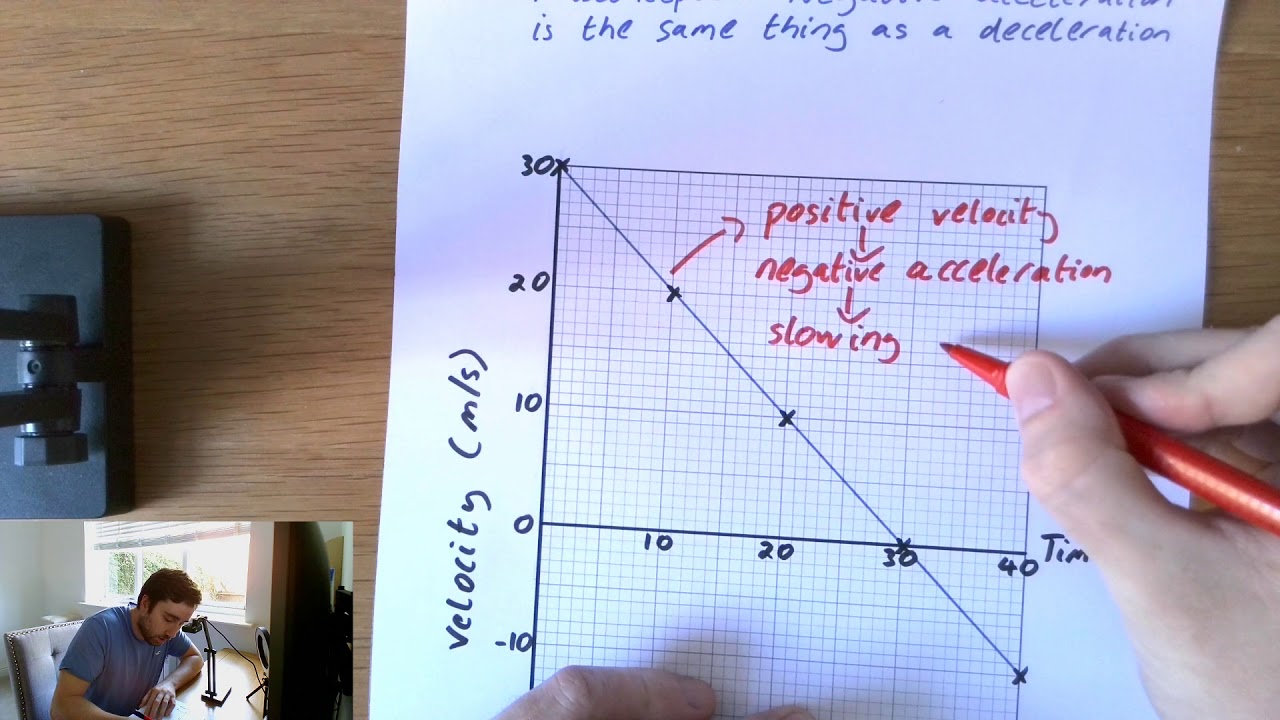 negative acceleration
is the same thing as a deceleration
30
positive velocity
20
negative acceleration
slowing
10
Velocity (m/s)
0
10
20
30
40
Tim
-10